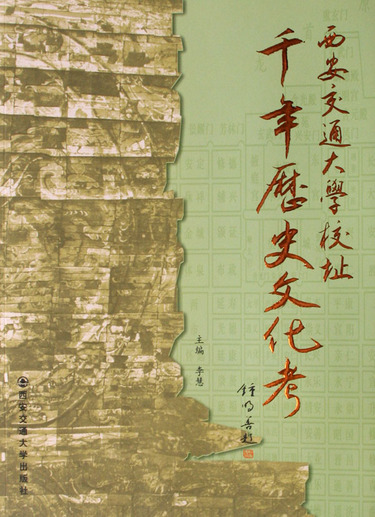 西安交通大學校址
千年歷史文化考
主编 李慧
鍾明善題
西安交通大学出版社